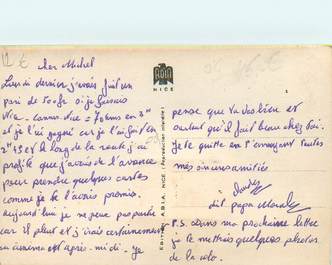 cher Michel
Lundi dernier j'avais fait un
pari de 500fr si je faisais
Nice - Cannes - Nice = 70 kms en 3h
et je l'ai gagné car je l'ai fait en
2h45 et le long de la route j'ai
profité que j'avais de l'avance
pour prendre quelques cartes
comme je te l'avais promis.
aujourd'hui je ne peux pas partir
car il pleut et j'irais certainement
au cinema cet après-midi. je
pense que tu vas bien et
surtout qu'il fait beau chez toi.
Je te quitte en t'envoyant toutes
mes sincères amitiés
dit papa
P.S. Dans ma prochaine lettre
je te mettrais quelques photos
de la
ADIA
NICE
EDITIONS A.D.I.A. NICE (Reproduction interdite)